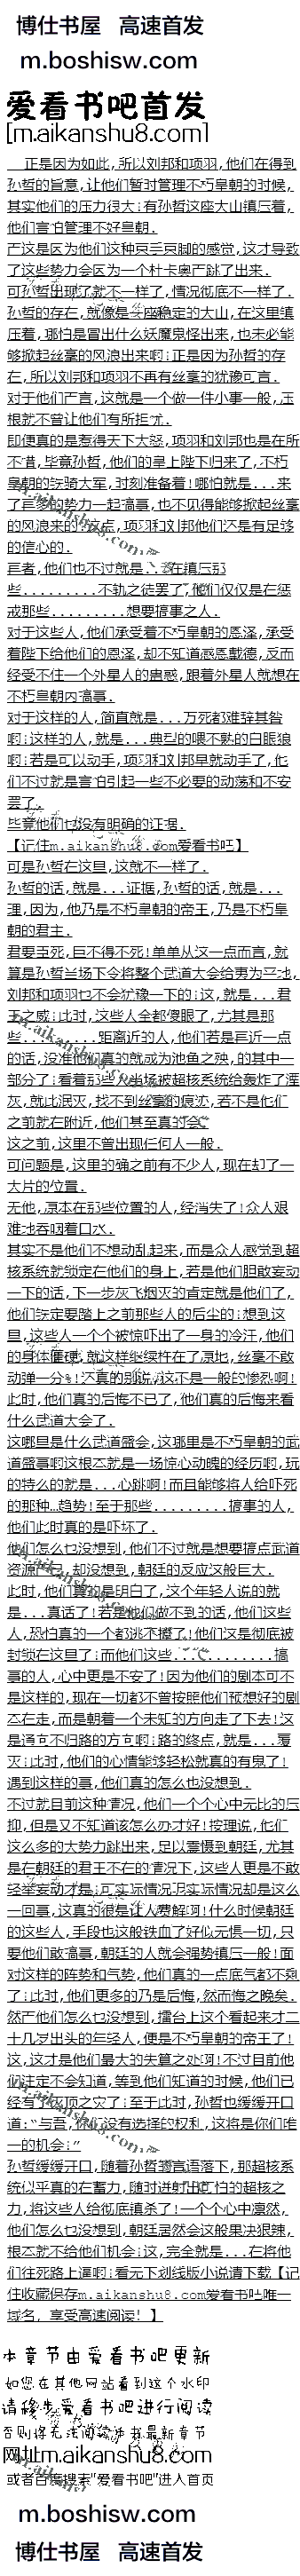 博仕书屋 高速首发
m.boshisw.com
爱看书吧首发
[m.aikanshu8.com]
正是因为如此,所以刘邦和项羽,他们在得到
孙哲的旨意,让他们暂时管理不朽皇朝的时候,
其实他们的压力很大!有孙哲这座大山镇压着,
他们害怕管理不好皇朝.
严这是因为他们这种束手束脚的感觉,这才导致
了这些势力会因为一个杜卡奥严跳了出来.
可孙哲出现了就不一样了,情况彻底不一样了.
孙哲的存在,就像是一座稳定的大山,在这里镇
压着,哪怕是冒出什么妖魔鬼怪出来,也未必能
够掀起丝毫的风浪出来啊!正是因为孙哲的存
在,所以刘邦和项羽不再有丝毫的犹豫可言.
对于他们严言,这就是一个做一件小事一般,压
根就不曾让他们有所担忧.
即便真的是惹得天下大怒,项羽和刘邦也是在所
不惜,毕竟孙哲,他们的皇上陛下归来了,不朽
皇朝的铁骑大军,时刻准备着!哪怕就是...来
了再多的势力一起搞事,也不见得能够掀起丝毫
的风浪来的!这点,项羽和刘邦他们还是有足够
的信心的.
再者,他们也不过就是...在镇压那
些.........不轨之徒罢了,他们仅仅是在惩
戒那些.........想要搞事之人.
对于这些人,他们承受着不朽皇朝的恩泽,承受
着陛下给他们的恩泽,却不知道感恩戴德,反而
经受不住一个外星人的蛊惑,跟着外星人就想在
不朽皇朝内搞事.
对于这样的人,简直就是...万死都难辞其咎
啊!这样的人,就是...典型的喂不熟的白眼狼
啊!若是可以动手,项羽和刘邦早就动手了,他
们不过就是害怕引起一些不必要的动荡和不安
罢了.
毕竟他们也没有明确的证据.
【记住m.aikanshu8.com爱看书吧】
可是孙哲在这里,这就不一样了.
孙哲的话,就是...证据,孙哲的话,就是...
理,因为,他乃是不朽皇朝的帝王,乃是不朽皇
朝的君主.
君要臣死,臣不得不死!单单从这一点而言,就
算是孙哲当场下令将整个武道大会给夷为平地,
刘邦和项羽也不会犹豫一下的!这,就是...君
王之威!此时,这些人全都傻眼了,尤其是那
些.........距离近的人,他们若是再近一点
的话,没准他们真的就成为池鱼之殃,的其中一
部分了!看着那些人当场被超核系统给轰炸了湮
灰,就此泯灭,找不到丝毫的痕迹,若不是他们
之前就在附近,他们甚至真的会
这之前,这里不曾出现任何人一般.
可问题是,这里的确之前有不少人,现在却了一
大片的位置.
无他,原本在那些位置的人,经消失了!众人艰
难地吞咽着口水.
其实不是他们不想动乱起来,而是众人感觉到超
核系统就锁定在他们的身上,若是他们胆敢妄动
一下的话,下一步灰飞烟灭的肯定就是他们了,
他们铁定要踏上之前那些人的后尘的!想到这
里,这些人一个个被惊吓出了一身的冷汗,他们
的身体僵硬,就这样继续杵在了原地,丝毫不敢
动弹一分%!还真的别说,这不是一般的惨烈啊!
此时,他们真的后悔不已了,他们真的后悔来看
什么武道大会了.
这哪里是什么武道盛会,这哪里是不朽皇朝的武
道盛事啊这根本就是一场惊心动魄的经历啊,玩
的特么的就是...心跳啊!而且能够将人给吓死
的那种…趋势!至于那些.........搞事的人,
他们此时真的是吓坏了.
他们怎么也没想到,他们不过就是想要搞点武道
资源而已,却没想到,朝廷的反应这般巨大.
此时,他们真的是明白了,这个年轻人说的就
是...真话了!若是他们做不到的话,他们这些
人,恐怕真的一个都逃不掉了!他们这是彻底被
封锁在这里了!而他们这些............搞
事的人,心中更是不安了!因为他们的剧本可不
是这样的,现在一切都不曾按照他们预想好的剧
本在走,而是朝着一个未知的方向走了下去!这
是通向不归路的方向啊!路的终点,就是...覆
灭!此时,他们的心情能够轻松就真的有鬼了!
遇到这样的事,他们真的怎么也没想到.
不过就目前这种情况,他们一个个心中无比的压
抑,但是又不知道该怎么办才好!按理说,他们
这么多的大势力跳出来,足以震慑到朝廷,尤其
是在朝廷的君王不在的情况下,这些人更是不敢
轻举妄动才是!可实际情况现实际情况却是这么
一回事,这真的很是让人费解啊!什么时候朝廷
的这些人,手段也这般铁血了好似无惧一切,只
要他们敢搞事,朝廷的人就会强势镇压一般!面
对这样的阵势和气势,他们真的一点底气都不剩
了!此时,他们更多的乃是后悔,然而悔之晚矣.
然严他们怎么也没想到,擂台上这个看起来才二
十几岁出头的年轻人,便是不朽皇朝的帝王了!
这,这才是他们最大的失算之处啊!不过目前他
们注定不会知道,等到他们知道的时候,他们已
经有了灭顶之灾了!至于此时,孙哲也缓缓开口
道:“与吾,你们没有选择的权利,这将是你们唯
一的机会!”
孙哲缓缓开口,随着孙哲的言语落下,那超核系
统似乎真的在蓄力,随时迸射出可怕的超核之
力,将这些人给彻底镇杀了!一个个心中凛然,
他们怎么也没想到,朝廷居然会这般果决狠辣,
根本就不给他们机会!这,完全就是...在将他
们往死路上逼啊!看无下划线版小说请下载【记
住收藏保存m.aikanshu8.com爱看书吧唯一
域名, 享受高速阅读! 】
本章节由爱看书吧更新
如您在其他网站看到这个水印
请移步爱看书吧进行阅读
否则将无法阅读本书最新章节
网址m.aikanshu8.com
或者百度搜索“爱看书吧”进入首页
m.boshisw.com
博仕书屋 高速首发